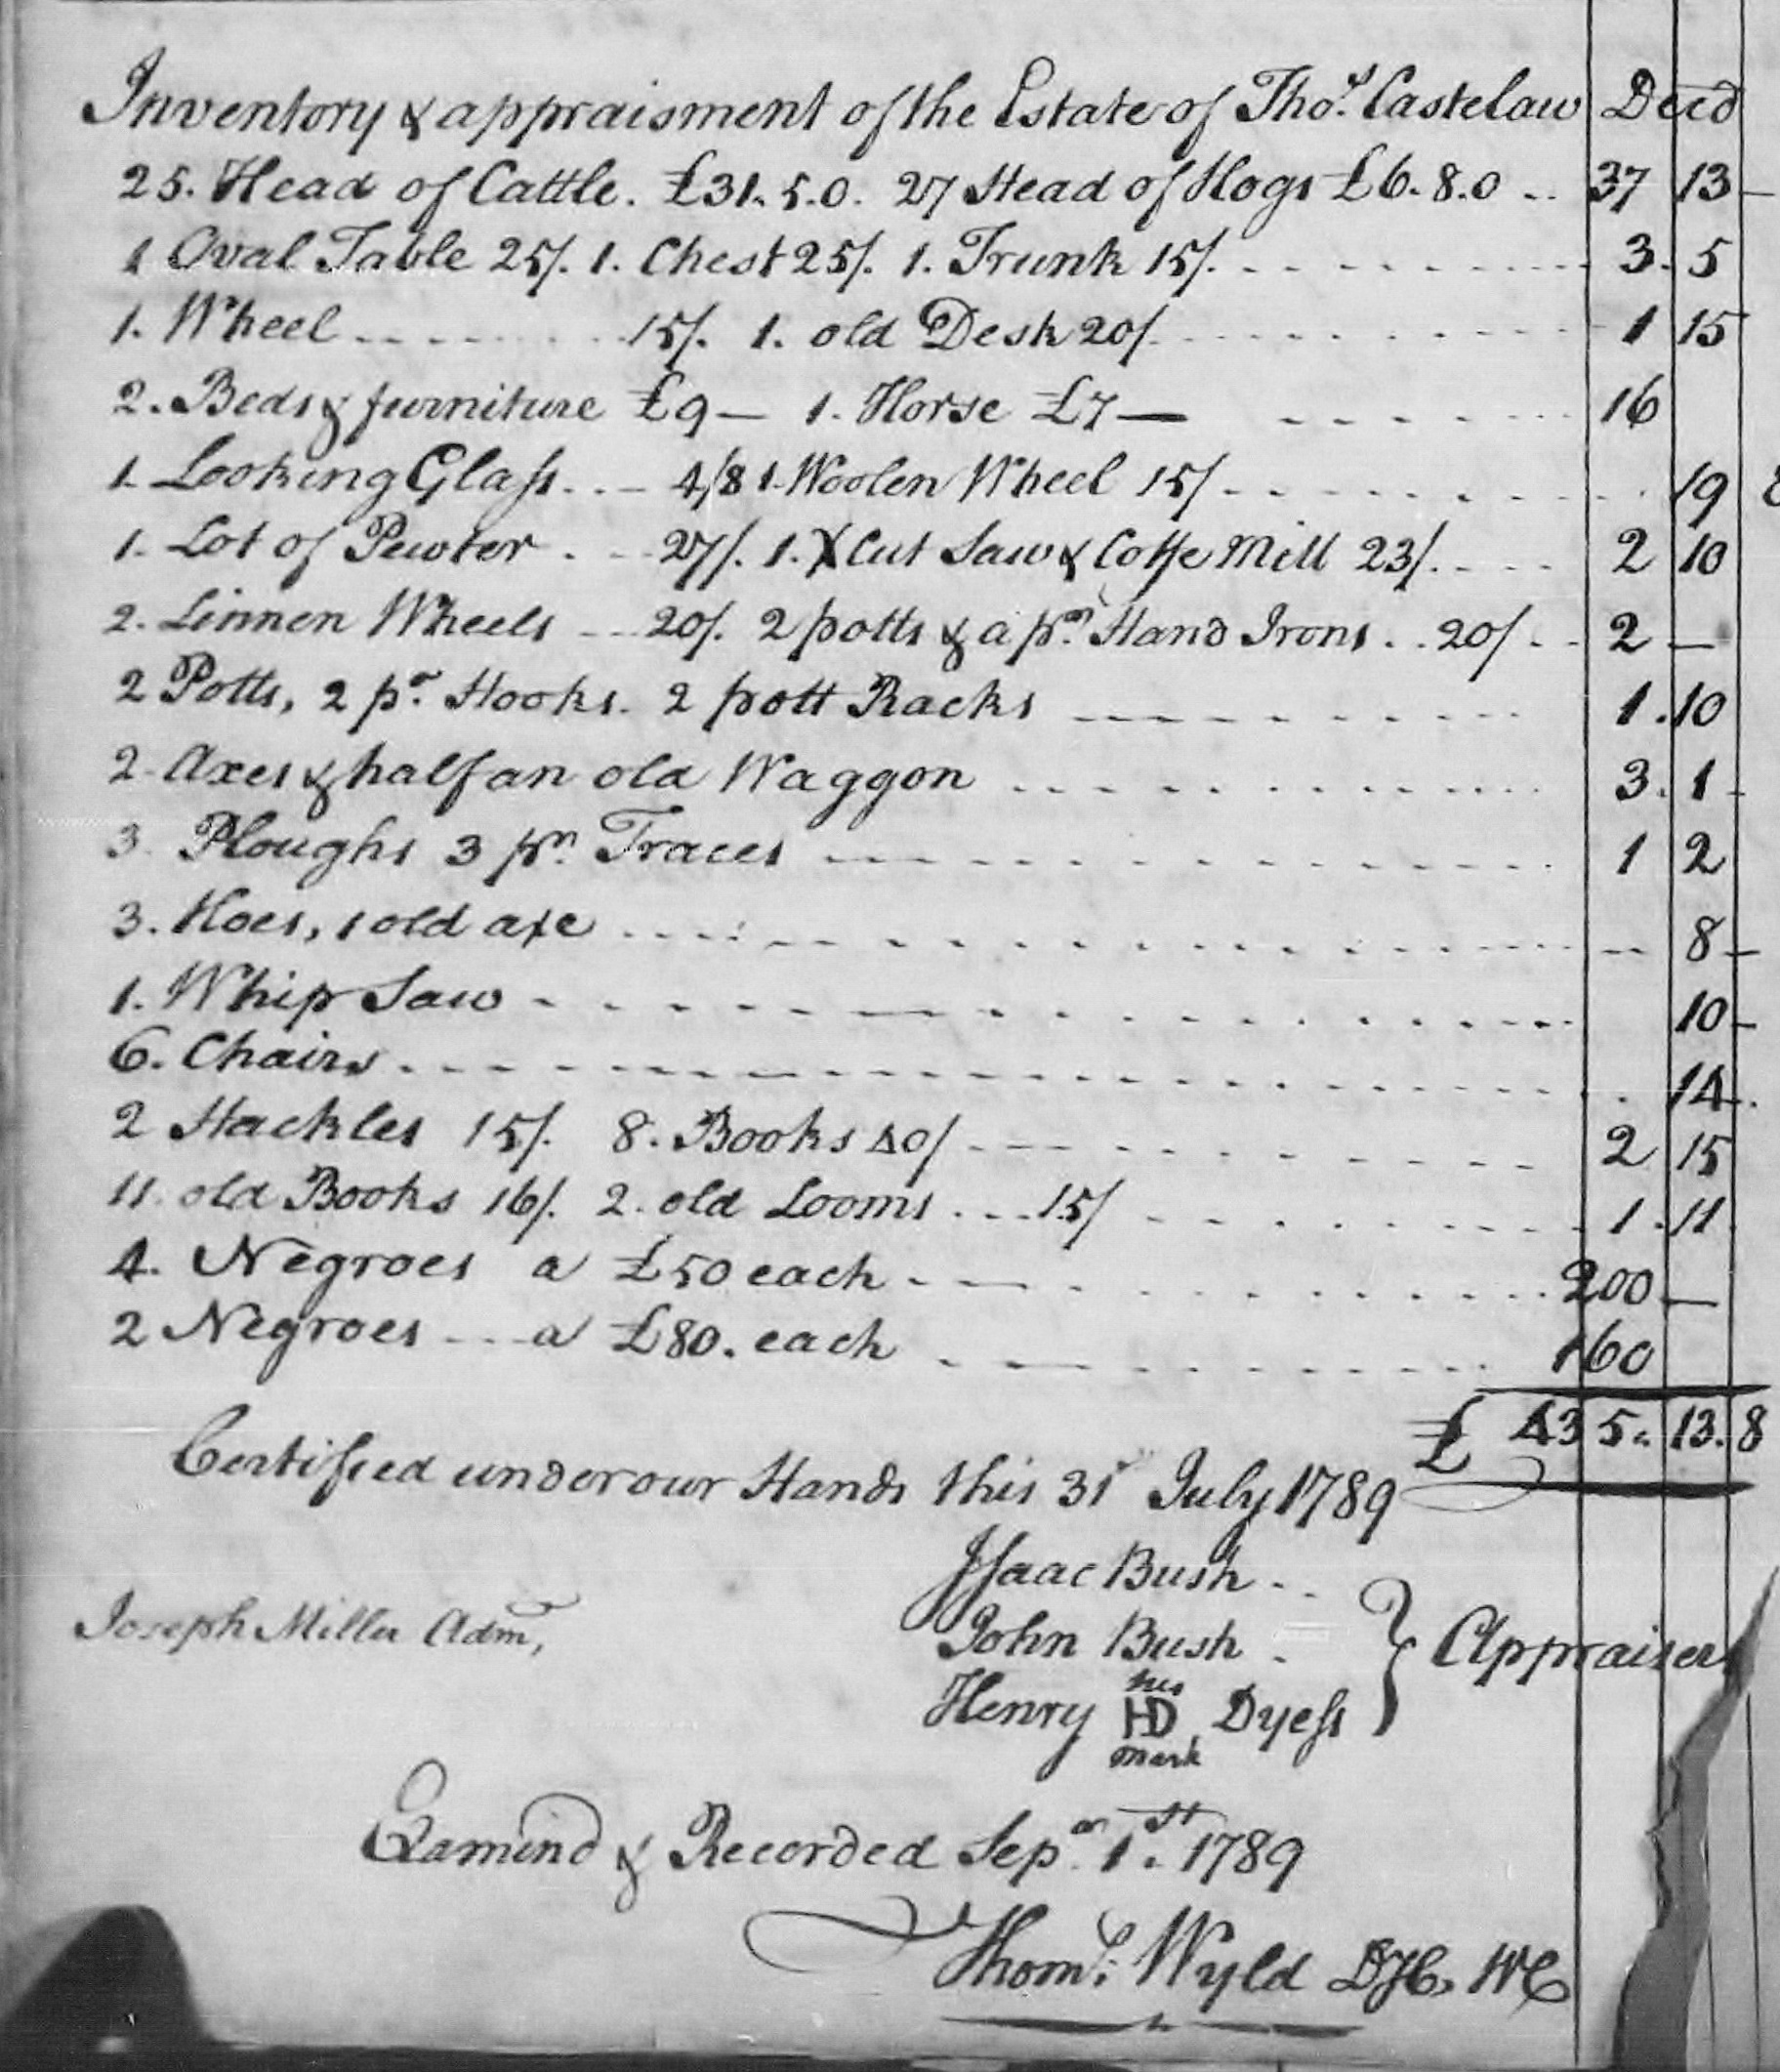 Inventory & appraisment of the Estate of Thos. Castelaw Decd
25. Head of Cattle. £31. 5. 0. 27 Head of Hogs £6. 8. 0 .. 37 13 –
1 Oval Table 25/. 1. Chest 25/. 1. Trunk 15/. 3. 5
1. Wheel 15/. 1. old Desk 20/. 1 15
2. Beds & furniture £9 – 1. Horse £7 – 16
1. Looking Glass 4/8 1. Woolen Wheel 15/ 19 8
1. Lot of Pewter 27/. 1. X Cut Saw & Coffe Mill 23/. 2 10
2. Linnen Wheels 20/. 2 potts & a pr. Hand Irons .. 20/ 2 –
2 Potts, 2 pr. Hooks. 2 pott Racks 1. 10
2. Axes & half an old Waggon 3. 1
3. Ploughs 3 pr. Traces 1 2
3. Hoes, 1 old axe 8 –
1. Whip Saw 10 –
6. Chairs 14.
2 Hackles 15/. 8. Books 40/ 2 15
11. old Books 16/. 2. old Looms 15/ 1. 11
4. Negroes a £50 each 200 –
2 Negroes a £80. each 160
£ 435. 13. 8
Certified under our Hands this 31st July 1789
Isaac Bush
John Bush
Joseph Miller Adm,
Appraisers
his
Henry HD Dyess
mark
Examind & Recorded Sepr. 1st. 1789
Thoms. Wyld